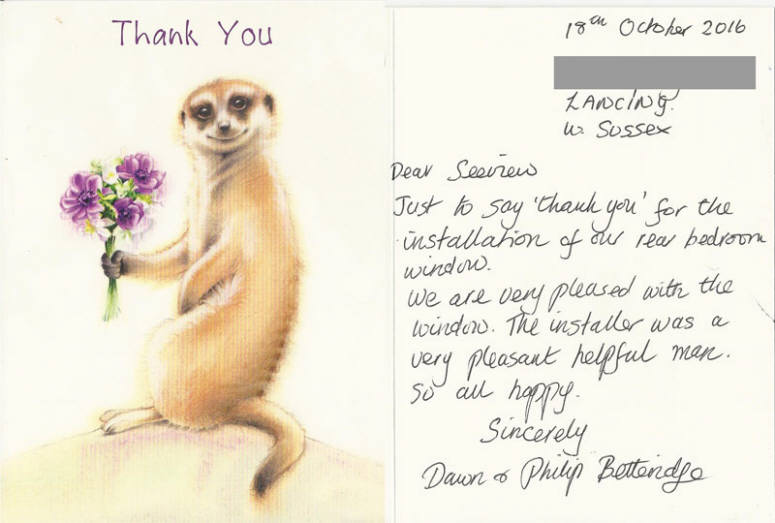 Thank You
18th October 2016
LANCING.
W. Sussex
Dear Seeview
Just to say 'thank you' for the
installation of our rear bedroom
window.
We are very pleased with the
window. The installer was a
very pleasant helpful man.
So all happy.
Sincerely
Dawn & Philip Betteridge